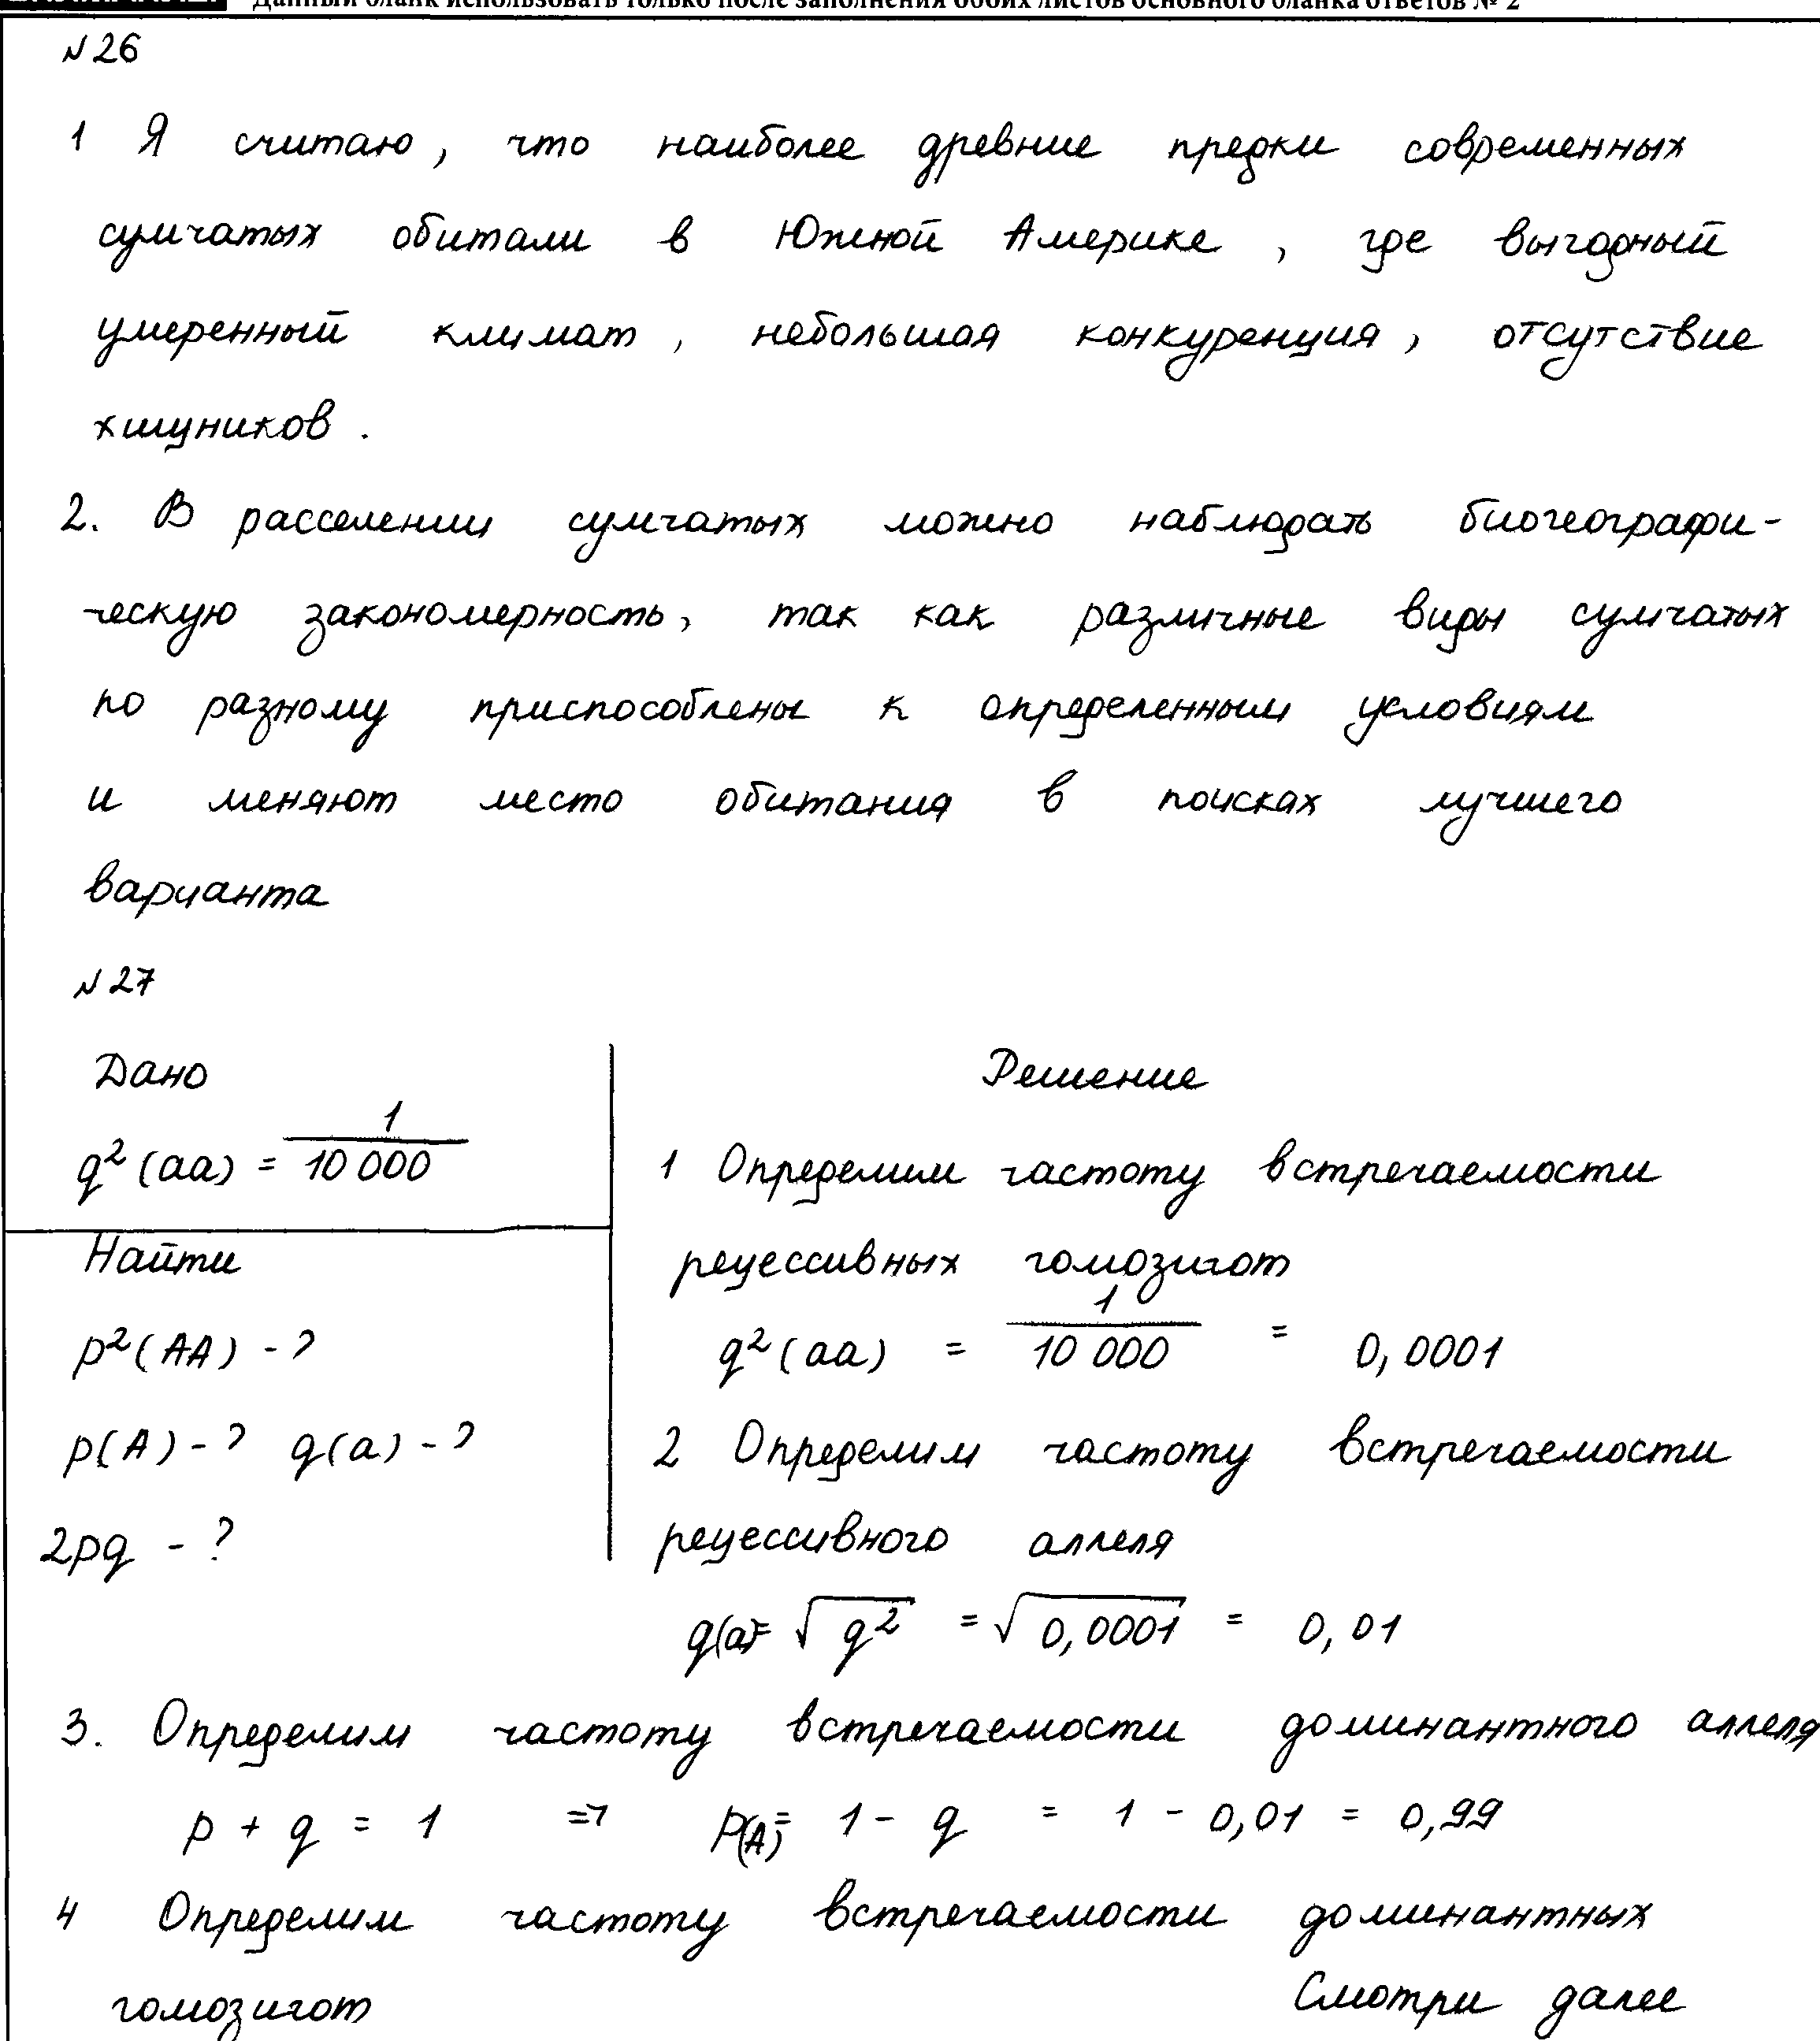 Данный бланк использовать только после заполнения обоих листов основного бланка ответов № 2
№26
1 Я считаю, что наиболее древние предки современных
сумчатых обитали в Южной Америке, где выгодный
умеренный климат, небольшая конкуренция, отсутствие
хищников.
2. В расселении сумчатых можно наблюдать биогеографи-
ческую закономерность, так как различные виды сумчатых
по разному приспособлены к определенным условиям
и меняют место обитания в поисках лучшего
варианта
№27
Дано
q²(aa) = 1/10 000
Найти
p²(AA) - ?
p(A) - ? q(a) - ?
2pq - ?
Решение
1 Определим частоту встречаемости
рецессивных гомозигот
q²(aa) = 1/10 000 = 0,0001
2 Определим частоту встречаемости
рецессивного аллеля
q(a)= √q² = √0,0001 = 0,01
3. Определим частоту встречаемости доминантного аллеля
p + q = 1 => p(A)= 1 - q = 1 - 0,01 = 0,99
4 Определим частоту встречаемости доминантных
гомозигот Смотри далее